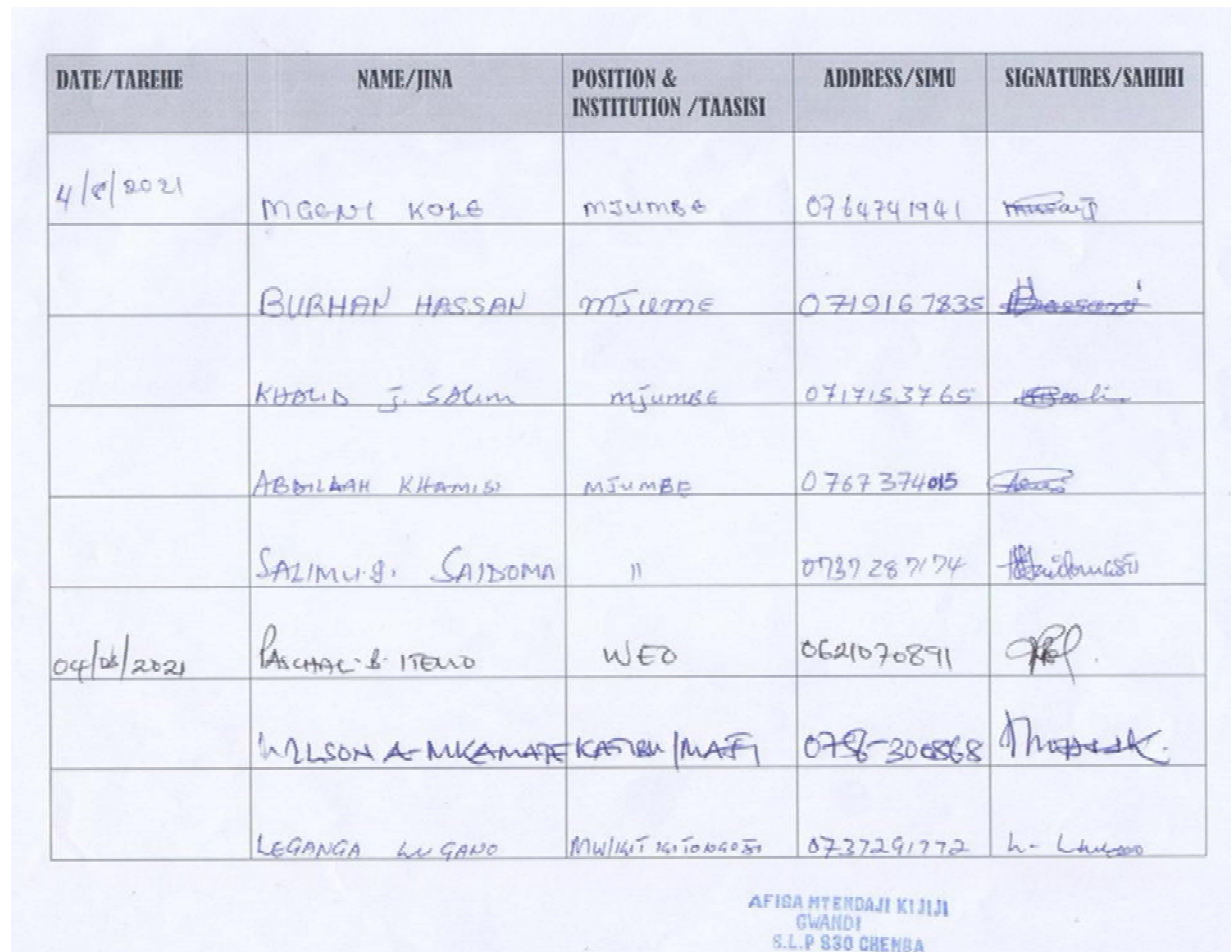 DATE/TAREHE NAME/JINA POSITION & INSTITUTION /TAASISI ADDRESS/SIMU SIGNATURES/SAHIHI
4/8/2021 MGENI KOLE MJUMBE 0764741941
BURHAN HASSAN MJUME 0719167835
KHALID J. SALIM MJUMBE 0717153765
ABDILAAH KHAMISI MJUMBE 0767374015
SALIMU.J. SAIDOMA 11 0737287174
04/08/2021 PASCHAL.B. ITELLO WEO 0621070891
WILSON A. MKAMATE KATIBU/MAJI
LEGANGA LUGANO MW/KIT KITONGOJI 0737291772
AFISA MTENDAJI KIJIJI
GWANDI
S.L.P 830 CHEMBA